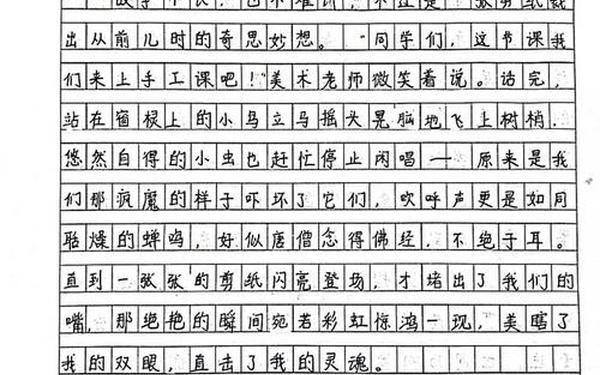 故事不长，也不难讲，不过是一张剪纸裁
出从前儿时的奇思妙想。"同学们，这节课我
们来上手工课吧！"美术老师微笑着说。话完，
站在窗棂上的小马立马摇头晃脑地飞上树梢.
悠然自得的小虫也赶忙停止闲唱——原来是我
们那疯魔的样子吓坏了它们，吹呼声更是如同
聒燥的蝉鸣，好似唐僧念得佛经，不绝于耳。
直到一张张的剪纸闪亮登场，才堵出了我们的
嘴，那绝艳的瞬间宛若彩虹惊鸿一现，美瞎了
我的双眼，直击了我的灵魂。